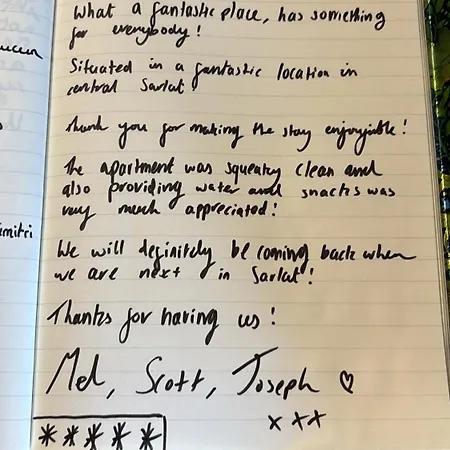 What a fantastic place, has something
for everybody!
Situated in a fantastic location in
central Sarlat
Thank you for making the stay enjoyable!
The apartment was squeaky clean and
also providing water and snacks was
very much appreciated!
We will definitely be coming back when
we are next in Sarlat!
Thanks for having us!
Mel, Scott, Joseph ♡
x x x
* * * * *